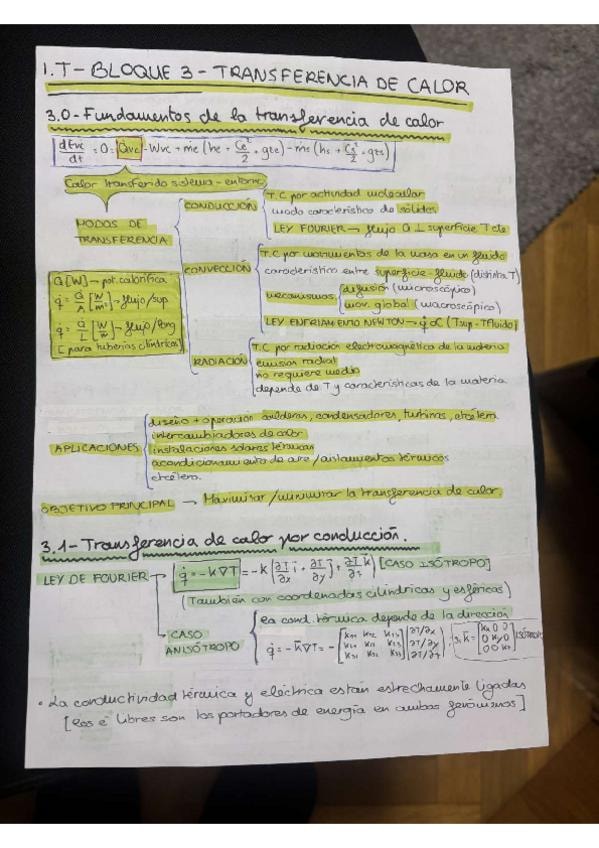 1.T - BLOQUE 3 - TRANSFERENCIA DE CALOR
3.0 - Fundamentos de la transferencia de calor
dEvc/dt = 0 = Q̇vc - Ẇvc + ṁe (he + Ce²/2 + gze) - ṁs (hs + Cs²/2 + gzs)
Calor transferido sistema - entorno
MODOS DE TRANSFERENCIA
CONDUCCIÓN
T.C por actividad molecular
modo característico de sólidos
LEY FOURIER → flujo Q ⊥ superficie T cte
CONVECCIÓN
T.C por movimientos de la masa en un fluido
característico entre superficie-fluido (distinta T)
mecanismos
difusión (microscópico)
mov. global (macroscópico)
LEY ENFRIAMIENTO NEWTON → q̇ α (Tsup - Tfluido)
RADIACIÓN
T.C por radiación electromagnética de la materia
emisión radial
no requiere medio
depende de T y características de la materia.
Q̇ [W] → pot. calorífica
q̇ = Q̇/A [W/m²] → flujo/sup
q̇ = Q̇/L [W/m] → flujo/long
[para tuberías cilíndricas]
APLICACIONES
diseño + operación calderas, condensadores, turbinas, etcétera
intercambiadores de calor
instalaciones solares térmicas
acondicionamiento de aire / aislamientos térmicos
etcétera.
OBJETIVO PRINCIPAL → Maximizar / minimizar la transferencia de calor.
3.1 - Transferencia de calor por conducción.
LEY DE FOURIER
q̇ = -k∇T = -k (∂T/∂x i + ∂T/∂y j + ∂T/∂z k) [CASO ISÓTROPO]
(También con coordenadas cilíndricas y esféricas)
CASO ANISÓTROPO
la cond. térmica depende de la dirección
q̇ = -k̄∇T = -
∂T/∂x
∂T/∂y
∂T/∂z
• La conductividad térmica y eléctrica están estrechamente ligadas
[los e⁻ libres son los portadores de energía en ambos fenómenos]